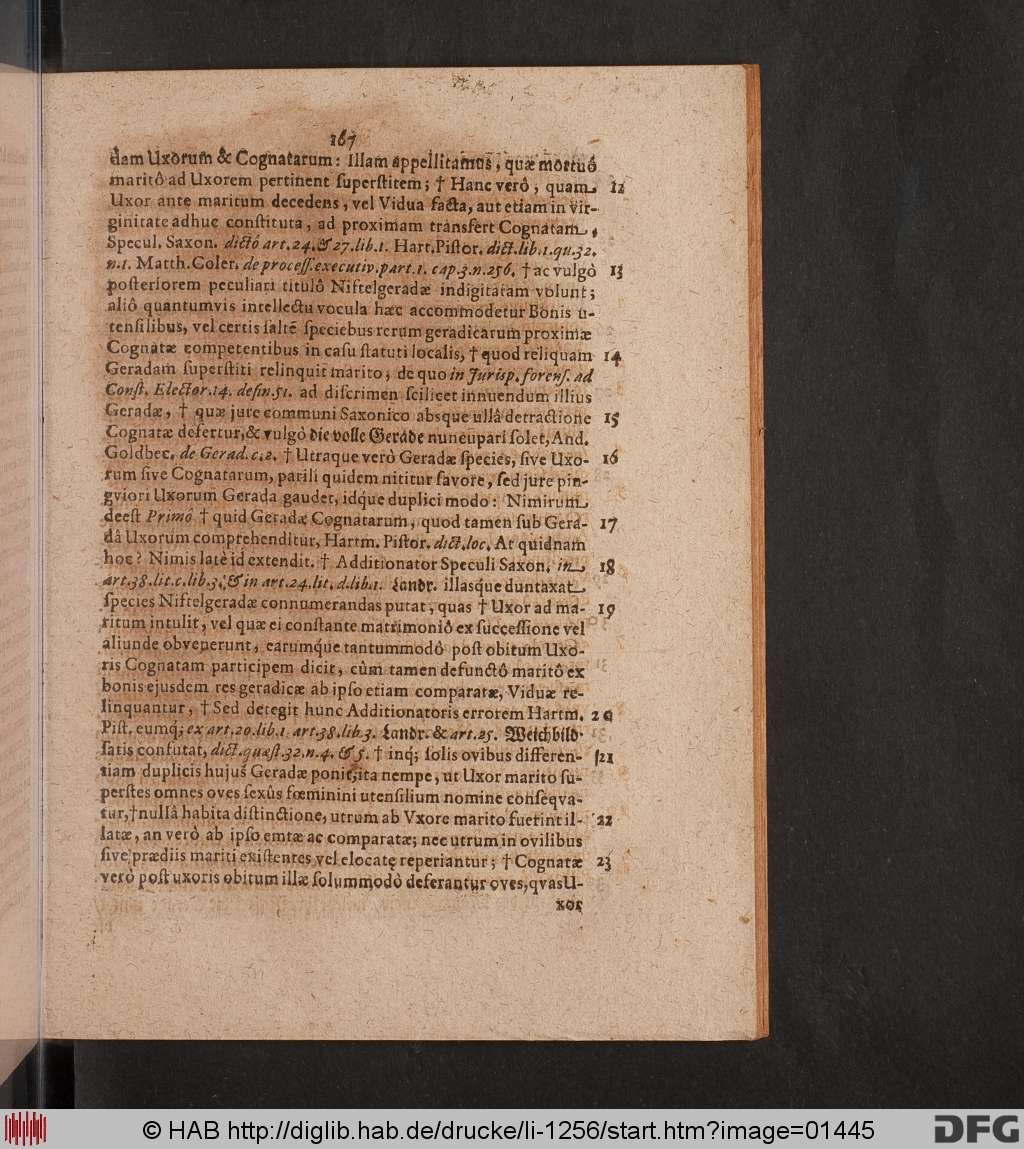 167
dam Uxorum & Cognatarum: Illam appellitamus, quæ mortuô
maritô ad Uxorem pertinent superstitem; † Hanc verô, quam 12
Uxor ante maritum decedens, vel Vidua facta, aut etiam in vir-
ginitate adhuc constituta, ad proximam transfert Cognatam,
Specul. Saxon. dictô art. 24. & 27. lib. 1. Hart. Pistor. dict. lib. 1. qu. 32.
n. 1. Matth. Coler. de process. executiv. part. 1. cap. 3. n. 256. † ac vulgò 13
posteriorem peculiari titulô Niftelgeradæ indigitatam volunt;
aliô quantumvis intellectu vocula hæc accommodetur Bonis u-
tensilibus, vel certis saltẽ speciebus rerum geradicarum proximæ
Cognatæ competentibus in casu statuti localis, † quod reliquam 14
Geradam superstiti relinquit marito, de quo in Jurisp. forens. ad
Const. Elector. 14. defin. 51. ad discrimen scilicet innuendum illius
Geradæ, † quæ jure communi Saxonico absque ullâ detractione 15
Cognatæ defertur, & vulgò die volle Gerade nuncupari solet, And.
Goldbec. de Gerad. c. 2. † Utraque verò Geradæ species, sive Uxo- 16
rum sive Cognatarum, parili quidem nititur favore, sed jure pin-
gviori Uxorum Gerada gaudet, idque duplici modo: Nimirum
deest Primô † quid Geradæ Cognatarum, quod tamen sub Gera- 17
dâ Uxorum comprehenditur, Hartm. Pistor. dict. loc. At quidnam
hoc? Nimis latè id extendit. † Additionator Speculi Saxon. in 18
art. 38. lit. c. lib. 3. & in art. 24. lit. d. lib. 1. Landr. illasq́ue duntaxat
species Niftelgeradæ connumerandas putat, quas † Uxor ad ma- 19
ritum intulit, vel quæ ei constante matrimoniô ex successione vel
aliunde obvenerunt, earumq́ue tantummodò post obitum Uxo-
ris Cognatam participem dicit, cùm tamen defunctô maritô ex
bonis ejusdem res geradicæ ab ipso etiam comparatæ, Viduæ re-
linquantur, † Sed detegit hunc Additionatoris errorem Hartm. 20
Pist. eumq́; ex art. 20. lib. 1 art. 38. lib. 3. Landr. & art. 25. Weichbild
satis confutat, dict. quæst. 32. n. 4. & 5. † inq; solis ovibus differen- 21
tiam duplicis hujus Geradæ ponit, ita nempe, ut Uxor marito su-
perstes omnes oves sexûs fœminini utensilium nomine conseqva-
tur, † nullâ habita distinctione, utrum ab Vxore marito fuerint il- 22
latæ, an verò ab ipso emtæ ac comparatæ; nec utrum in ovilibus
sive prædiis mariti existentes vel elocatę reperiantur; † Cognatæ 23
verò post uxoris obitum illæ solummodò deferantur oves, qvas U-
xor
© HAB http://diglib.hab.de/drucke/li-1256/start.htm?image=01445
DFG